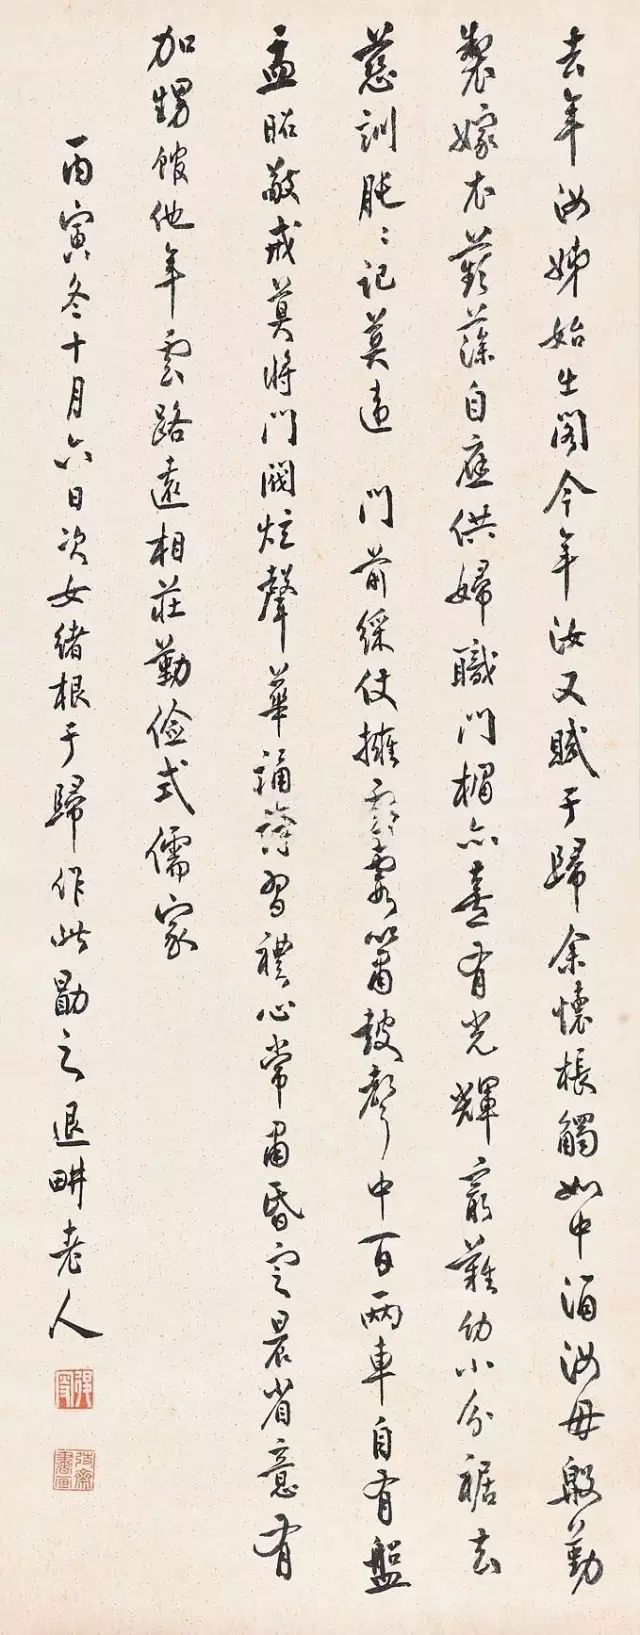 去年汝姊始出閣今年汝又賦于歸余懷棖觸如中酒汝母殷勤
製嫁衣蘋藻自應供婦職門楣亦喜有光輝最難幼小分裾去
慈訓肫〻記莫違 門前綵仗擁雲霞簫鼓聲中百兩車自有盤
盂昭敬戒莫將門閥炫聲華誦詩習禮心常肅昏定晨省意有
加甥館他年雲路遠相莊勤儉式儒家
丙寅冬十月六日次女緒根于歸作此勖之退畊老人